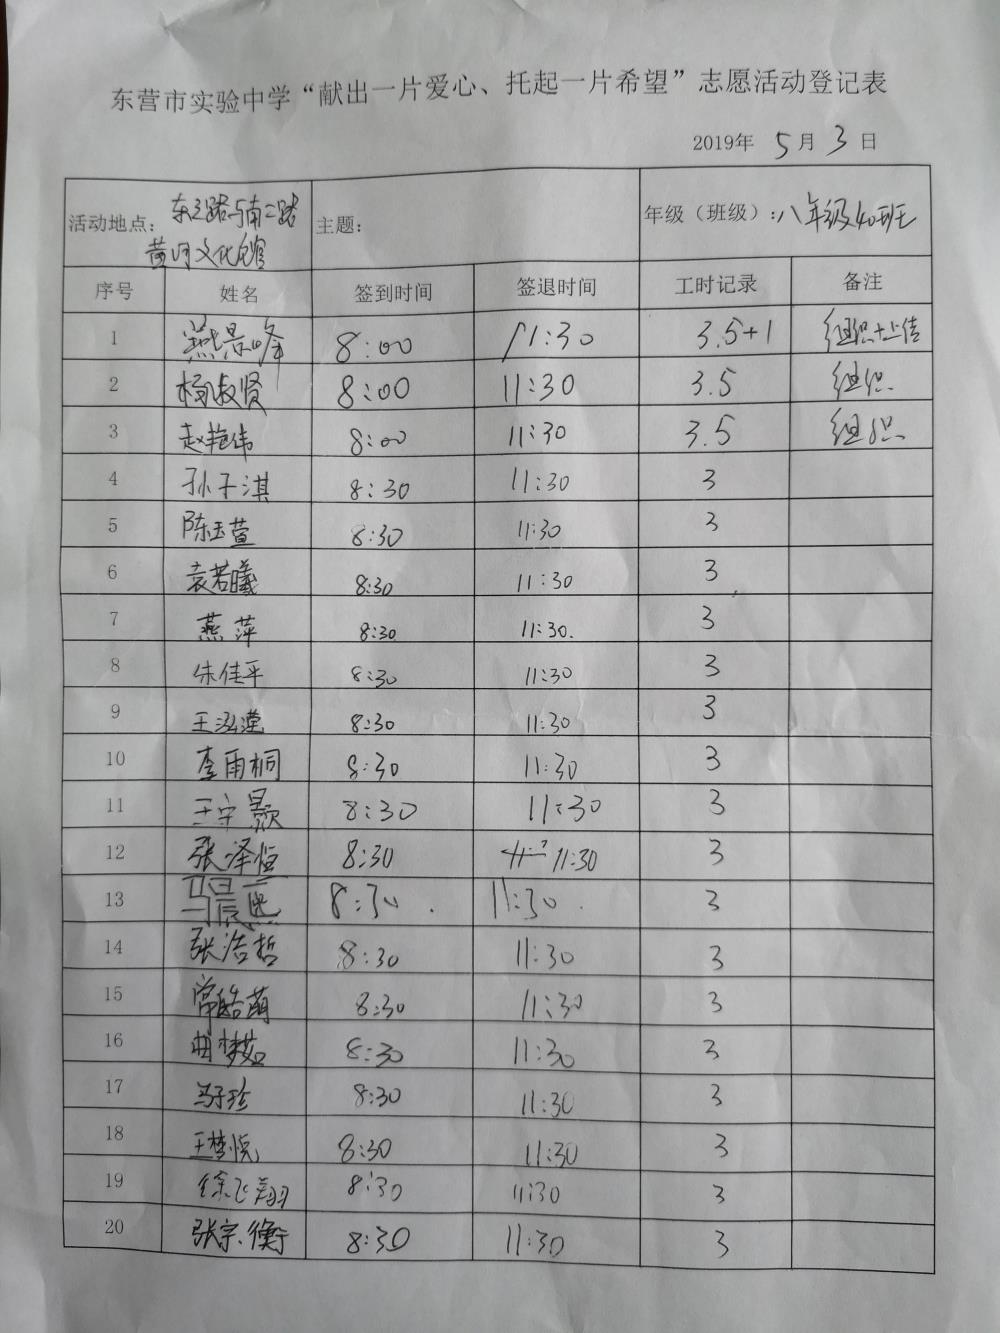 东营市实验中学“献出一片爱心、托起一片希望”志愿活动登记表
2019年 5 月 3 日
活动地点： 东三路与南二路 主题： 年级（班级）：八年级40班
黄河文化馆
序号 姓名 签到时间 签退时间 工时记录 备注
1 燕景峰 8:00 11:30 3.5+1 组织+上传
2 杨淑贤 8:00 11:30 3.5 组织
3 赵艳伟 8:00 11:30 3.5 组织
4 孙子淇 8:30 11:30 3
5 陈玉萱 8:30 11:30 3
6 袁若曦 8:30 11:30 3
7 燕萍 8:30 11:30. 3
8 朱佳平 8:30 11:30 3
9 王泓滢 8:30 11:30 3
10 李雨桐 8:30 11:30 3
11 王宇颢 8:30 11:30 3
12 张泽恒 8:30 11:30 3
13 马晨熙 8:30. 11:30. 3
14 张浩哲 8:30 11:30 3
15 常皓萌 8:30 11:30 3
16 曲梦茹 8:30 11:30 3
17 马子珍 8:30 11:30 3
18 王梦悦 8:30 11:30 3
19 徐飞翔 8:30 11:30 3
20 张宗衡 8:30 11:30 3